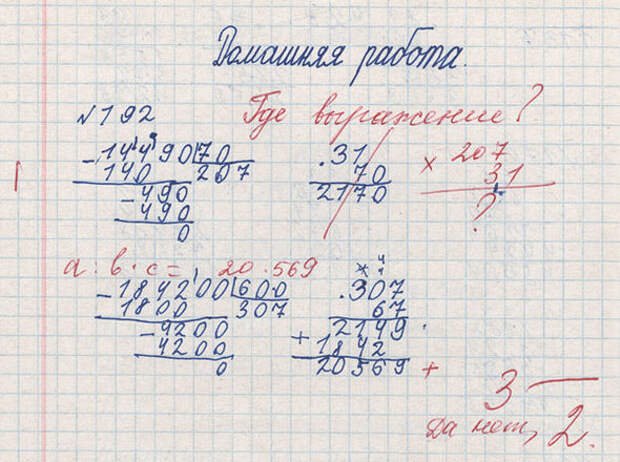 Домашняя работа.
№192 Где выражение?
-14490|70 .31 × 207
140 207 70 31
-490 2170 ?
490
0
а : в · с = 20.569
-184200|600 × .307
1800 307 67
-4200 2149
4200 + 1842
0 20569 +
3 —
Да нет, 2.